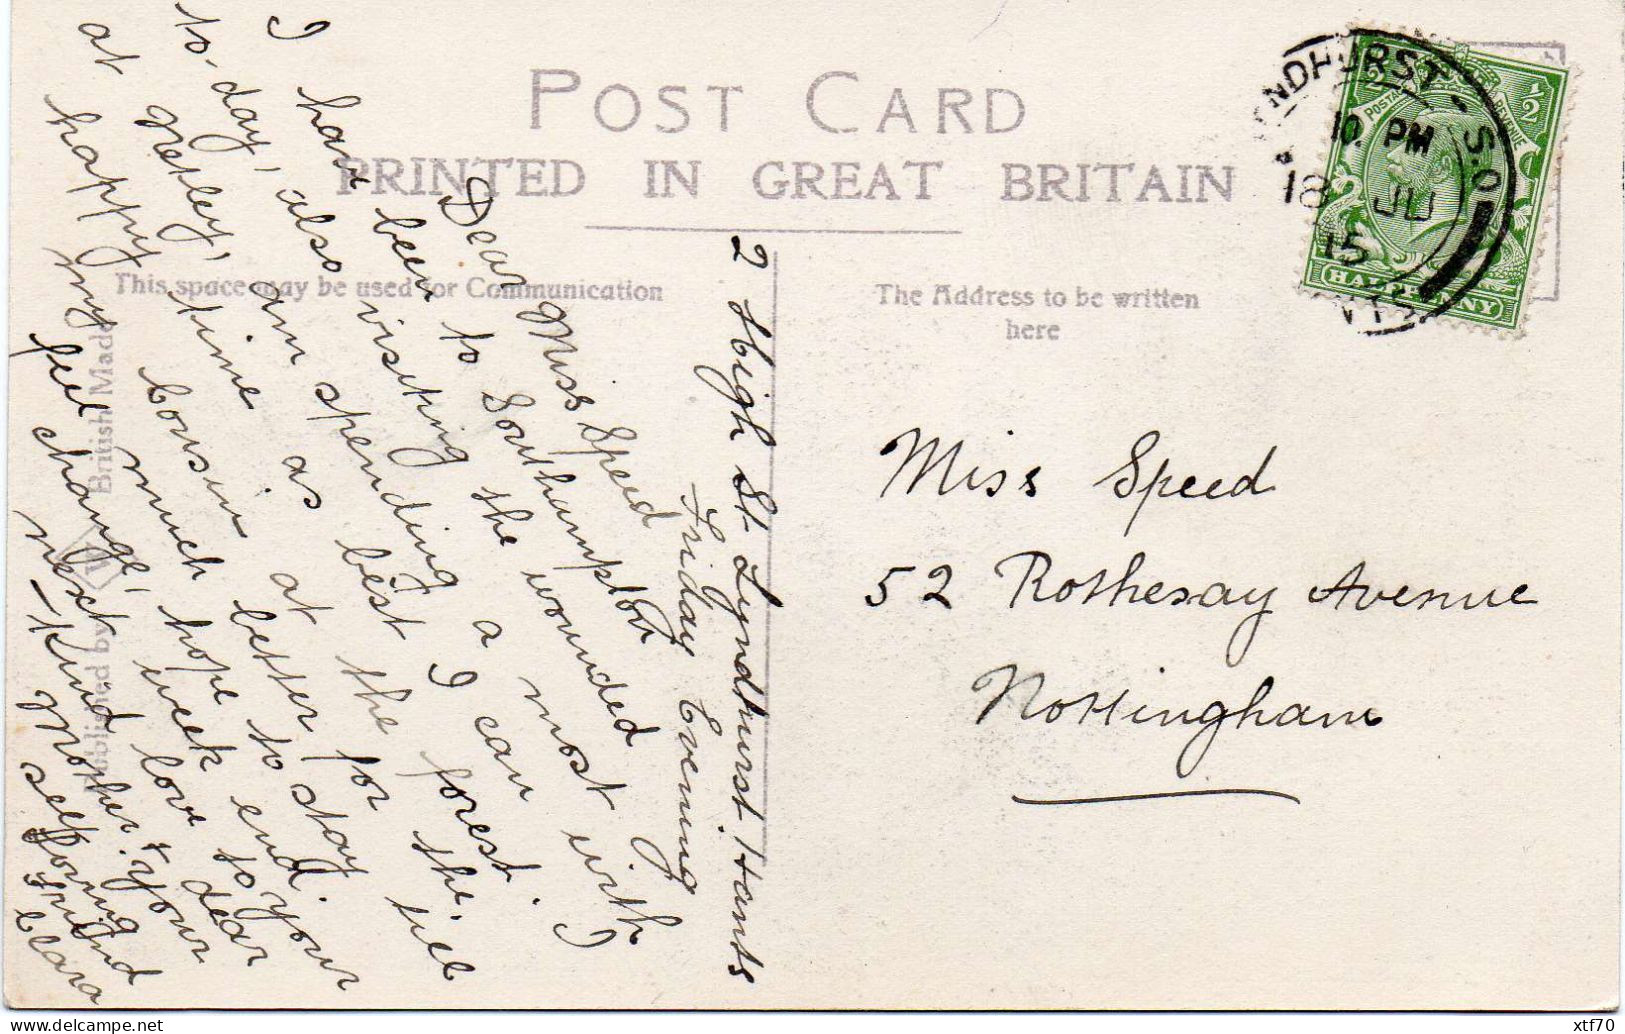 POST CARD
PRINTED IN GREAT BRITAIN
This space may be used for Communication
The Address to be written
here
Published by W British Made
NDHURST. S.O.
10. PM
18 JU
15
POSTAGE REVENUE
½ ½
HALFPENNY
2 High St. Lyndhurst. Hants
Friday Evening
Dear Miss Speed
I have been to Southampton
to-day, also visiting the wounded
at Netley, am spending a most
happy time as best I can with
my Cousin at the forest. I
feel much better for the
change, hope to stay till
next week end.
Kind love to your dear
Mother & your
self
friend
Clara
Miss Speed
52 Rothesay Avenue
Nottingham
xtf70